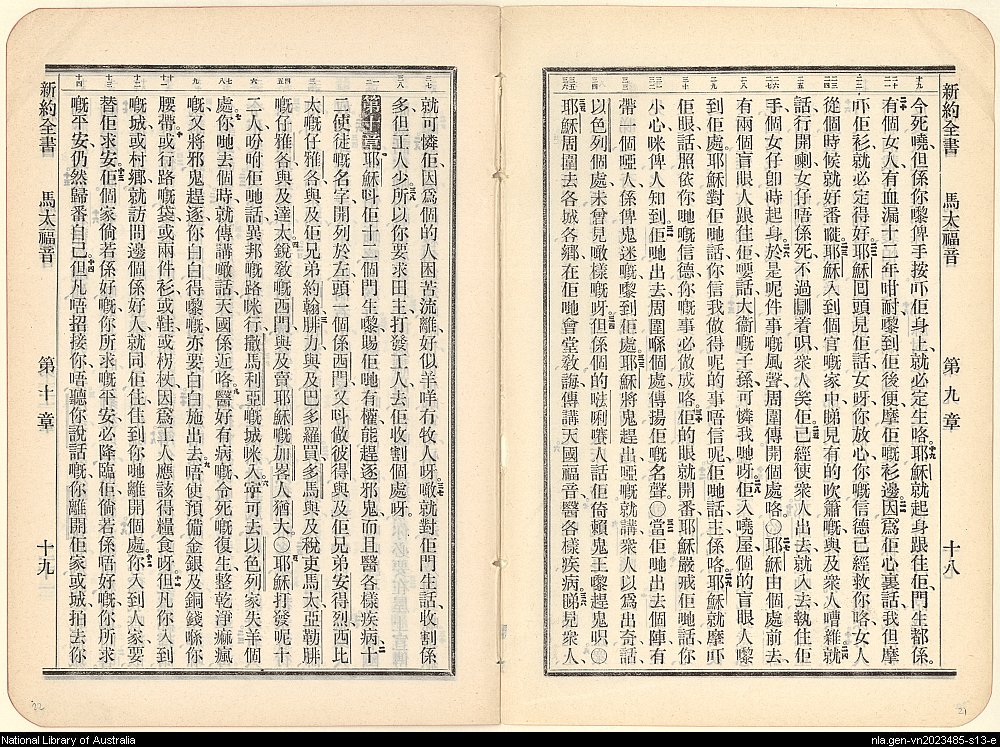 新約全書 馬太福音 第九章 十八
今死嘵、但係你嚟俾手按吓佢身上、就必定生咯。耶穌就起身跟住佢、門生都係。
有個女人、有血漏十二年咁耐、嚟到佢後便、摩佢嘅衫邊、因爲佢心裏話、我但凡摩
吓佢衫、就必定得好。耶穌回頭見佢、話、女呀、你放心、你嘅信德已經救你咯、女人
從個時候就好番嘥。耶穌入到個官嘅家中、睇見有的吹簫嘅、與及衆人嘈雜、就
話、行開喇、女仔唔係死、不過瞓着呮、衆人笑佢。已經使衆人出去、就入去執住佢
手、個女仔卽時起身。於是呢件事嘅風聲、周圍傳開個處咯。〇耶穌由個處前去、
有兩個盲眼人跟住佢、嗌話、大衛嘅子孫、可憐我哋呀。佢入嘵屋、個的盲眼人嚟
到佢處、耶穌對佢哋話、你信我做得呢的事唔信呢、佢哋話、主、係咯。耶穌就摩吓
佢眼、話、照依你哋嘅信德、你嘅事必做成咯。佢的眼就開番、耶穌嚴戒佢哋話、你
小心、咪俾人知到。佢哋出去、周圍喺個處傳揚佢嘅名聲。〇當佢哋出去個陣、有
帶一個啞人、係俾鬼迷嘅、嚟到佢處。耶穌將鬼趕出、啞嘅就講、衆人以爲出奇、話、
以色列個處、未曾見噉樣嘅呀。但係個的唎人話、佢倚賴鬼王嚟趕鬼呮。〇
耶穌周圍去各城各鄉、在佢哋會堂教誨、傳講天國福音、醫各樣疾病。睇見衆人、
21
就可憐佢、因爲個的人困苦流離、好似羊咩有牧人呀。噉就對佢門生話、收割係
多、但工人少、所以你要求田主、打發工人去佢收割個處呀。
第十章 耶穌呌佢十二個門生嚟、賜佢哋有權能趕逐邪鬼、而且醫各樣疾病。十
二使徒嘅名字、開列於左、頭一個係西門、又呌做彼得、與及佢兄弟安得烈、西比
太嘅仔雅各、與及佢兄弟約翰、腓力與及巴多羅買、多馬與及稅吏馬太、亞勒腓
嘅仔雅各、與及達太、銳敎嘅西門、與及賣耶穌嘅加畧人猶大。〇耶穌打發呢十
二人、吩咐佢哋話、異邦嘅路咪行、撒馬利亞嘅城咪入、寧可去以色列家失羊個
處。你哋去個時、就傳講噉話、天國係近咯。醫好有病嘅、令死嘅復生、整乾淨痲瘋
嘅、又將邪鬼趕逐、你白白得嚟嘅、亦要白白施出去。唔使預備金銀及銅錢喺你
腰帶、或行路嘅袋、或兩件衫、或鞋、或柺杖、因爲工人應該得糧食呀。但凡你入到
嘅城或村鄉、就訪問邊個係好人、就同佢住、住到你哋離開個處。你入到人家、要
替佢求安。佢個家倘若係好嘅、你所求嘅平安、必降臨佢、倘若係唔好嘅、你所求
嘅平安、仍然歸番自己。但凡唔招接你、唔聽你說話嘅、你離開佢家或城、拍去你
新約全書 馬太福音 第十章 十九
22
National Library of Australia
nla.gen-vn2023485-s13-e